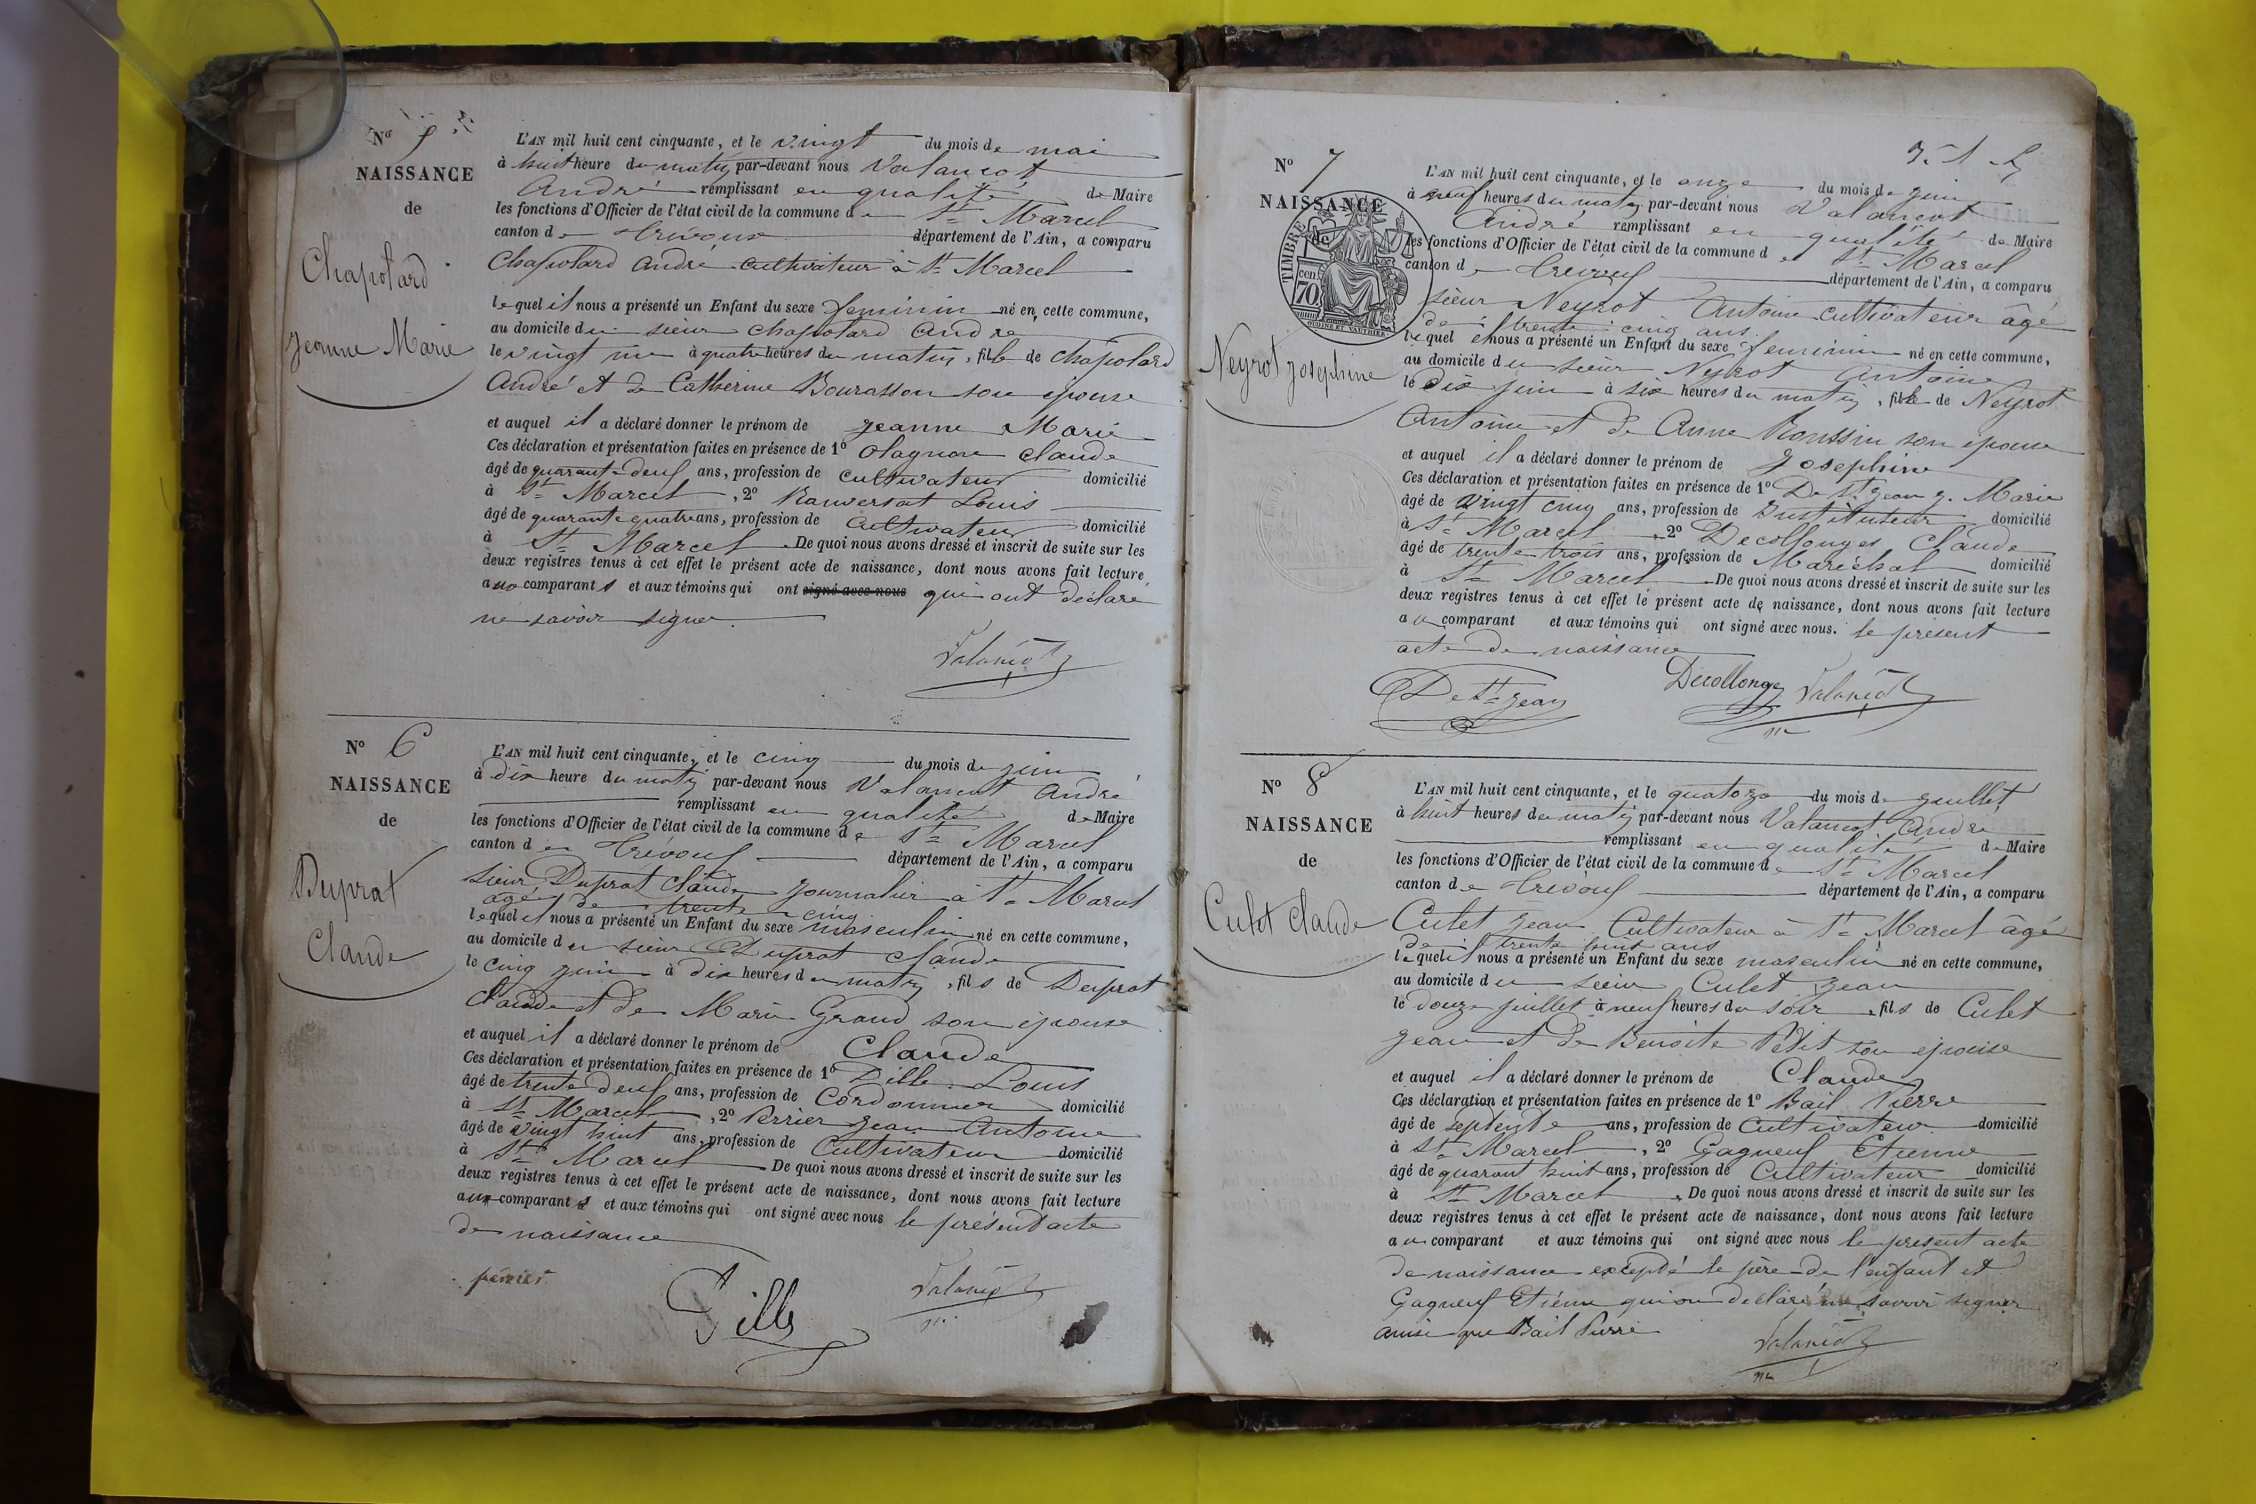 N° 5
NAISSANCE
de
Chapolard
Jeanne Marie
L'AN mil huit cent cinquante, et le vingt du mois de mai
à huit heure du matin par-devant nous Valancot
André remplissant en qualité de Maire
les fonctions d'Officier de l'état civil de la commune de St Marcel
canton de Trévoux département de l'Ain, a comparu
Chapolard André cultivateur à St Marcel
lequel il nous a présenté un Enfant du sexe feminin né en cette commune,
au domicile du sieur Chapolard André
le vingt mai à quatre heures du matin, fille de Chapolard
André et de Catherine Bourasson son épouse
et auquel il a déclaré donner le prénom de Jeanne Marie
Ces déclaration et présentation faites en présence de 1° Olagnon Claude
âgé de quarante-deux ans, profession de cultivateur domicilié
à St Marcel, 2° Ranversat Louis
âgé de quarante quatre ans, profession de Cultivateur domicilié
à St Marcel De quoi nous avons dressé et inscrit de suite sur les
deux registres tenus à cet effet le présent acte de naissance, dont nous avons fait lecture
aux comparants et aux témoins qui ont signé avec nous qui ont déclaré
ne savoir signer.
Valancot
N° 6
NAISSANCE
de
Duprat
Claude
L'AN mil huit cent cinquante, et le cinq du mois de juin
à dix heure du matin par-devant nous Valancot André
remplissant en qualité de Maire
les fonctions d'Officier de l'état civil de la commune de St Marcel
canton de Trévoux département de l'Ain, a comparu
sieur Duprat Claude journalier à St Marcel
agé de trente cinq
lequel il nous a présenté un Enfant du sexe masculin né en cette commune,
au domicile du sieur Duprat Claude
le cinq juin à dix heures du matin, fils de Duprat
Claude et de Marie Grand son épouse
et auquel il a déclaré donner le prénom de Claude
Ces déclaration et présentation faites en présence de 1° Dille Louis
âgé de trente deux ans, profession de Cordonnier domicilié
à St Marcel, 2° Perrier Jean Antoine
âgé de vingt huit ans, profession de Cultivateur domicilié
à St Marcel De quoi nous avons dressé et inscrit de suite sur les
deux registres tenus à cet effet le présent acte de naissance, dont nous avons fait lecture
aux comparants et aux témoins qui ont signé avec nous le présent acte
de naissance
perrier Dille Valancot
N° 7
NAISSANCE
de
TIMBRE
70 cen
OUDINE ET VAUTHIER
Neyrot Josephine
L'AN mil huit cent cinquante, et le onze du mois de juin
à neuf heures du matin par-devant nous Valancot
André remplissant en qualité de Maire
les fonctions d'Officier de l'état civil de la commune de St Marcel
canton de Trévoux département de l'Ain, a comparu
sieur Neyrot Antoine cultivateur âgé
de trente cinq ans
lequel il nous a présenté un Enfant du sexe feminin né en cette commune,
au domicile du sieur Neyrot Antoine
le dix juin à six heures du matin, fille de Neyrot
Antoine et de Anne Roussin son épouse
et auquel il a déclaré donner le prénom de Josephine
Ces déclaration et présentation faites en présence de 1° De St Jean J. Marie
âgé de vingt cinq ans, profession de Instituteur domicilié
à St Marcel 2° Decollonges Claude
âgé de trente trois ans, profession de Maréchal domicilié
à St Marcel De quoi nous avons dressé et inscrit de suite sur les
deux registres tenus à cet effet le présent acte de naissance, dont nous avons fait lecture
au comparant et aux témoins qui ont signé avec nous. le présent
acte de naissance
De St Jean Decollonge Valancot
N° 8
NAISSANCE
de
Culet Claude
L'AN mil huit cent cinquante, et le quatorze du mois de juillet
à huit heures du matin par-devant nous Valancot André
remplissant en qualité de Maire
les fonctions d'Officier de l'état civil de la commune de St Marcel
canton de Trévoux département de l'Ain, a comparu
Culet Jean Cultivateur à St Marcel âgé
de trente huit ans
lequel il nous a présenté un Enfant du sexe masculin né en cette commune,
au domicile du sieur Culet Jean
le douze juillet à neuf heures du soir, fils de Culet
Jean et de Benoite Petit son épouse
et auquel il a déclaré donner le prénom de Claude
Ces déclaration et présentation faites en présence de 1° Bail Pierre
âgé de septente ans, profession de Cultivateur domicilié
à St Marcel, 2° Gagneux Etienne
âgé de quarant huit ans, profession de Cultivateur domicilié
à St Marcel. De quoi nous avons dressé et inscrit de suite sur les
deux registres tenus à cet effet le présent acte de naissance, dont nous avons fait lecture
au comparant et aux témoins qui ont signé avec nous le présent acte
de naissance excepté le père de l'enfant et
Gagneux Etienne qui on déclaré ne savoir signer
ainsi que Bail Pierre
Valancot